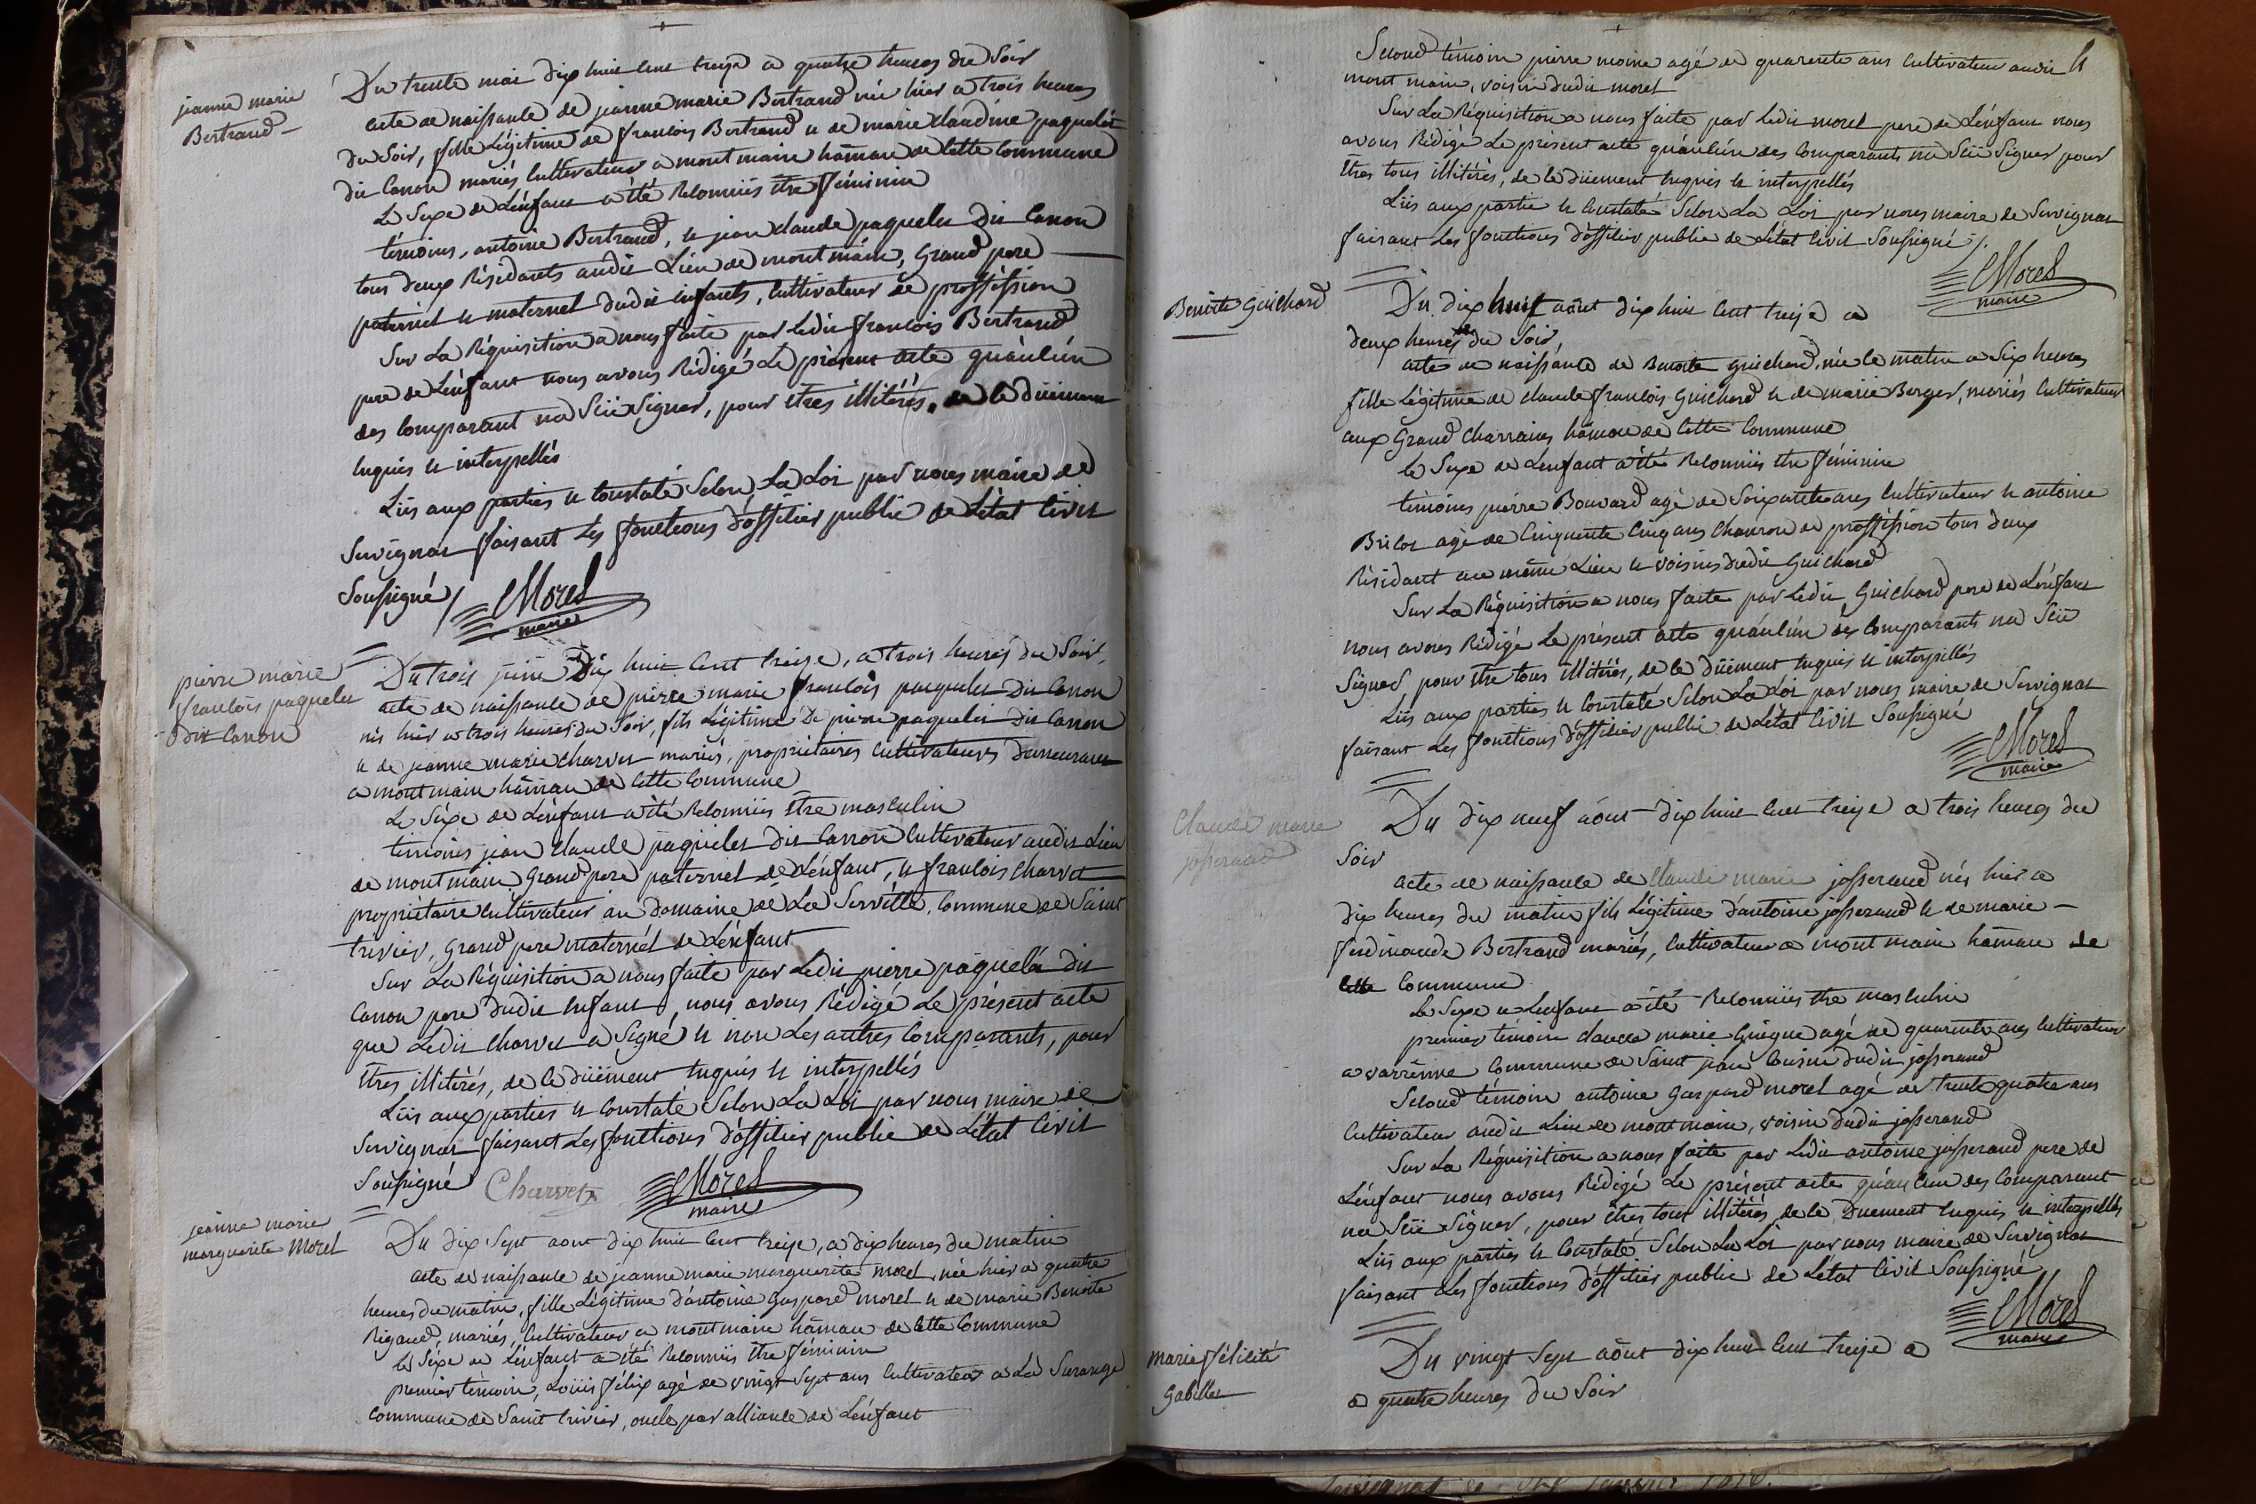 jeanne marie
Bertrand
Du trente mai dix huit cent treize a quatre heures du Soir
acte de naissance de jeanne marie Bertrand née hier a trois heures
du Soir, fille Légitime de francois Bertrand et de marie claudine paquelet
dit Canon mariés Cultivateur a mont main hâmau de Cette Commune
Le Sexe de L'énfant a été Reconnüs être féminin
témoins, antoine Bertrand, et jean claude paquelet dit Canon
tous deux Résidants audit Lieu de mont main, Grand pere
paternel et maternel dudit Enfants, Cultivateur de proffession
Sur La Réquisition a nous faite par Ledit francois Bertrand
pere de L'énfant nous avons Rédigé Le présent acte qu'aucun
des Comparant na Sçü Signer, pour etres illitérés, de ce düement
Enquis et interpellés
Lüs aux parties et Constaté Selon La Loi par nous maire de
Servignat faisant Les fonctions d'officier public de L'état Civil
Soussigné /. Morel
maire
pierre marie
francois paquelet
dit Canon
Du trois juin Dix huit Cent treize, a trois heures du Soir,
acte de naissance de pierre marie francois paquelet dit Canon
nés hier a trois heures du Soir, fils Légitime de pierre paquelet dit Canon
et de jeanne marie charvet mariés, propriétaires Cultivateurs demeurant
a mont main hâmau de Cette Commune
Le Séxe de L'énfant a été Reconnüs être masculin
témoins jean claude paquelet dit Canon Cultivateur audit Lieu
de mont main Grand pere paternel de L'énfant, et francois charvet
propriétaire Cultivateur au Domaine de La Servette, Commune de Saint
trivier, Grand pere maternél de L'énfant
Sur La Réquisition a nous faite par Ledit pierre paquelet dit
Canon pere dudit Enfant, nous avons Rédigé Le présent acte
que Ledit charvet a Signé et non Les autres Comparants, pour
Etres illitérés, de ce düement Enquis et interpellés
Lüs aux parties et Constaté Selon La Loi par nous maire de
Servignat faisant Les fonctions d'officier public de L'état Civil
Soussigné Charvet Morel
maire
jeanne marie
marguerite Morel
Du dix Sept aout dix huit Cent treize, a dix heures du matin
acte de naissance de jeanne marie marguerite morel, née hier a quatre
heures du matin, fille Légitime d'antoine Gaspard morel et de marie Benoite
Rigaud, mariés, Cultivateur a mont main hâmau de Cette Commune
Le Séxe de L'énfant a été Reconnüs être féminin
premier témoin, Loüis félix agé de vingt Sept ans Cultivateur a La Surange
Commune de Saint trivier, oncle par alliance de L'énfant
Second témoin pierre moine agé de quarente ans Cultivateur audit
mont main, voisin dudit morel
Sur La Réquisition a nous faite par Ledit morel pere de L'énfant nous
avons Rédigé Le présent acte qu'aucun des Comparants na Sçü Signer pour
Etres tous illitérés, de ce düement Enquis et interpellés
Lüs aux partie et Constaté Selon La Loi par nous maire de Servignat
faisant Les fonctions d'officier public de L'état Civil Soussigné /.
Morel
maire
Benoite Guichard
Du dix huit août dix huit Cent treize a
deux heures du Soir
acte de naissance de Benoite Guichard, née le matin a Six heures
fille Légitime de claude francois Guichard et de marie Berger, mariés Cultivateur
aux Grand Charraing hâmau de Cette Commune
Le Sexe de L'enfant a été Reconnüs être féminin
témoins pierre Bouvard agé de Soixante ans Cultivateur et antoine
Brelot agé de Cinquente Cinq ans Charron de proffession tous deux
Résidant au même Lieu et voisins dudit Guichard
Sur La Réquisition a nous faite par Ledit Guichard pere de L'énfant
nous avons Rédigé Le présent acte qu'aucun des Comparants na Sçü
Signer, pour être tous illitérés, de ce düement Enquis et interpellés
Lüs aux parties et Constaté Selon La Loi par nous maire de Servignat
faisant Les fonctions d'officier public de L'état Civil Soussigné
Morel
maire
Claude marie
josserand
Du dix neuf août dix huit Cent treize a trois heures du
Soir
acte de naissance de Claude marie josserand nés hier a
dix heures du matin fils Légitime d'antoine josserand et de marie
ferdinande Bertrand mariés, Cultivateur a mont main hâmau de
Cette Commune
Le Sexe de L'enfant a été Reconnüs être masculin
premier témoin claude marie Guigue agé de quarente ans Cultivateur
a varrênne Commune de Saint jean Cousin dudit josserand
Second témoin antoine Gaspard morel agé de trente quatre ans
Cultivateur audit Lieu de mont main, voisin dudit josserand
Sur La Réquisition a nous faite par Ledit antoine josserand pere de
L'énfant nous avons Rédigé Le présent acte qu'aucun des Comparant
na Sçü Signer, pour êtres tous illitérés, de ce Duement Enquis et interpellés
Lüs aux parties et Constaté Selon La Loi par nous maire de Servignat
faisant Les fonctions d'officier public de L'état Civil Soussigné
Morel
maire
Marie félicité
Gabillet
Du vingt Sept août dix huit Cent treize a
a quatre heures du Soir